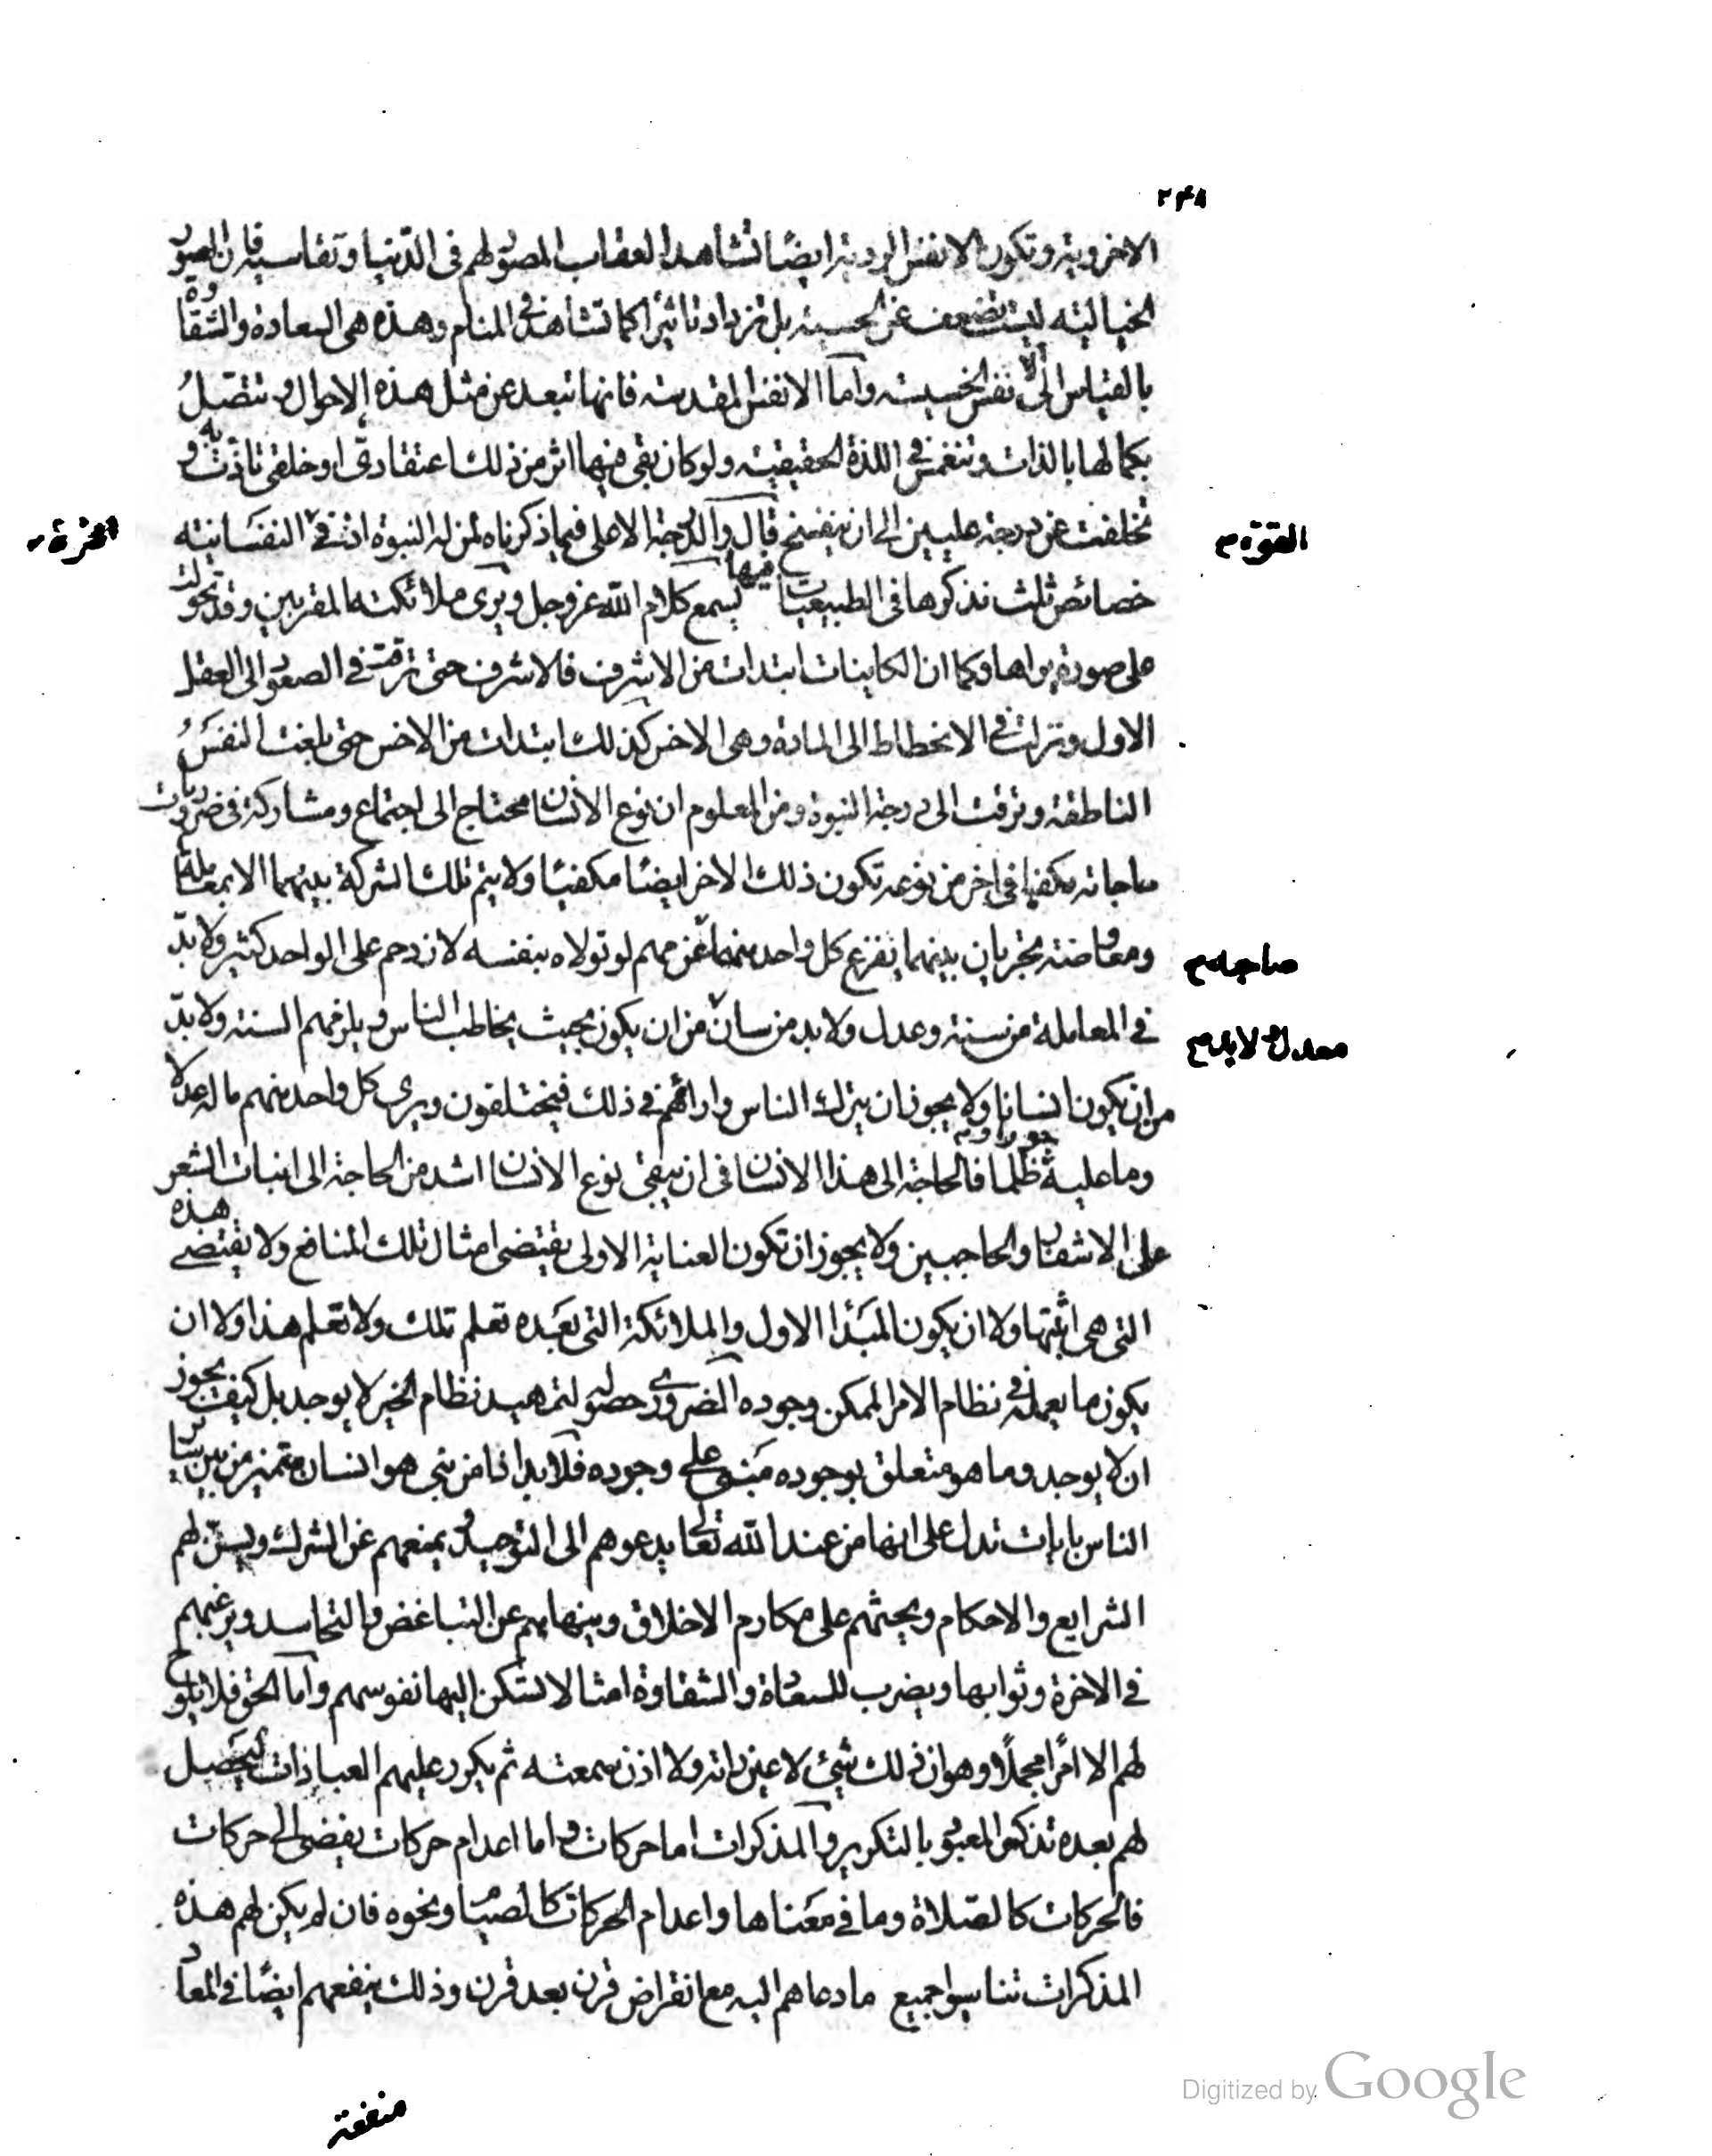 ٢۴٨
الاخروية وتكون الانفس الردية ايضا تشاهد العقاب المصور لهم فى الدنيا وتقاسيه فان الصور
الخيالية ليست تضعف عن الحسية بل تزداد تاثيرا كما تشاهد فى المنام وهذه هى السعادة والشقاوة
بالقياس الى الانفس الخسيسة واما الانفس المقدسة فانها تبعد عن مثل هذه الاحوال وتتصل
بكمالها بالذات وتنغمس فى اللذة الحقيقية ولو كان بقى فيها اثر من ذلك اعتقادى او خلقى تاذت به و
تخلفت عن درجة عليين الى ان ينفسخ قال والدرجة الاعلى فيما ذكرناه لمن له النبوة اذ فى النفسانية
القوة م
خصائص ثلث نذكرها فى الطبيعيات فبها يسمع كلام الله عز وجل ويرى ملائكته المقربين وقد تحولت
على صورة يراها وكما ان الكاينات ابتدات من الاشرف فالاشرف حتى ترقت فى الصعود الى العقل
الاول ونزلت فى الانحطاط الى المادة وهى الاخس كذلك ابتدات من الاخس حتى بلغت النفس
الناطقة وترقت الى درجة النبوة ومن المعلوم ان نوع الانسان محتاج الى اجتماع ومشاركة فى ضروريات
حاجاته مكفيا فى اخر من نوعه تكون ذلك الاخر ايضا مكفيا ولا يتم تلك الشركة بينهما الا بمعاملة
ومعاوضة تجريان بينهما يفزع كل واحد منهما عن مهم لو تولاه بنفسه لازدحم على الواحد كثير ولا بد
صاحبه م
فى المعاملة من سنة وعدل ولا بد من سان من ان يكون بحيث يخاطب الناس ويلزمهم السنة ولا بد
معدل ولا بد م
من ان يكون انسانا ولا يجوز ان يترك الناس واراءهم فى ذلك فيختلفون ويرى كل واحد منهم ماله عدلا
وما عليه جورا وظلما فالحاجة الى هذا الانسان فى ان يبقى نوع الانسان اشد من الحاجة الى انبات الشعر
على الاشفار والحاجبين ولا يجوز ان تكون العناية الاولى يقتضى امثال تلك المنافع ولا يقتضى هذه
التى هى اثبتها ولا ان يكون المبدا الاول والملائكة التى بعده تعلم تلك ولا تعلم هذا ولا ان
يكون ما يعمله فى نظام الامر الممكن وجوده الضرورى حصوله لتمهيد نظام الخير لا يوجد بل كيف يجوز
ان لا يوجد وما هو متعلق بوجوده مبنى على وجوده فلا بد اذا من نبى هو انسان متميز من بين ساير
الناس بايات تدل على انها من عند الله تعالى يدعوهم الى التوحيد ويمنعهم عن الشرك ويسن لهم
الشرايع والاحكام ويحثهم على مكارم الاخلاق وينهاهم عن التباغض والتحاسد ويرغبهم
فى الاخرة وثوابها ويضرب للسعادة والشقاوة امثالا لتسكن اليها نفوسهم واما الحق فلا يلوح
لهم الا امرا مجملا وهو ان ذلك شيئ لا عين راته ولا اذن سمعته ثم يكرر عليهم العبادات ليحصل
لهم بعده تذكر المعبود بالتكرير والمذكرات اما حركات واما اعدام حركات يفضى الى حركات
فالحركات كالصلاة وما فى معناها واعدام الحركات كالصيام ونحوه فان لم يكن لهم هذه
المذكرات تناسوا جميع ما دعاهم اليه مع انقراض قرن بعد قرن وذلك ينفعهم ايضا فى المعاد
منفعة
Digitized by Google